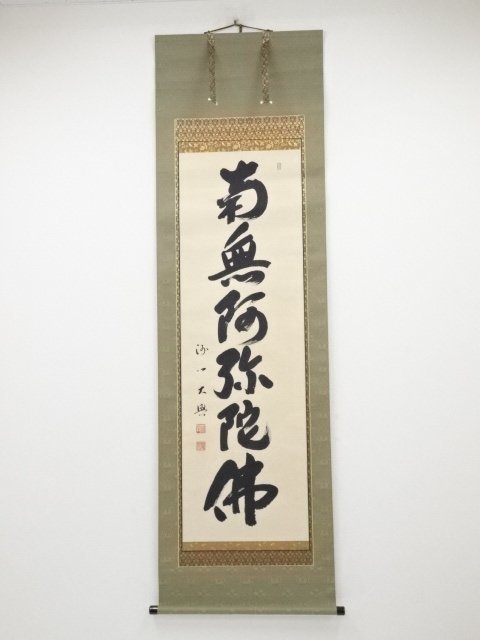 南無阿弥陀佛
沙门大興